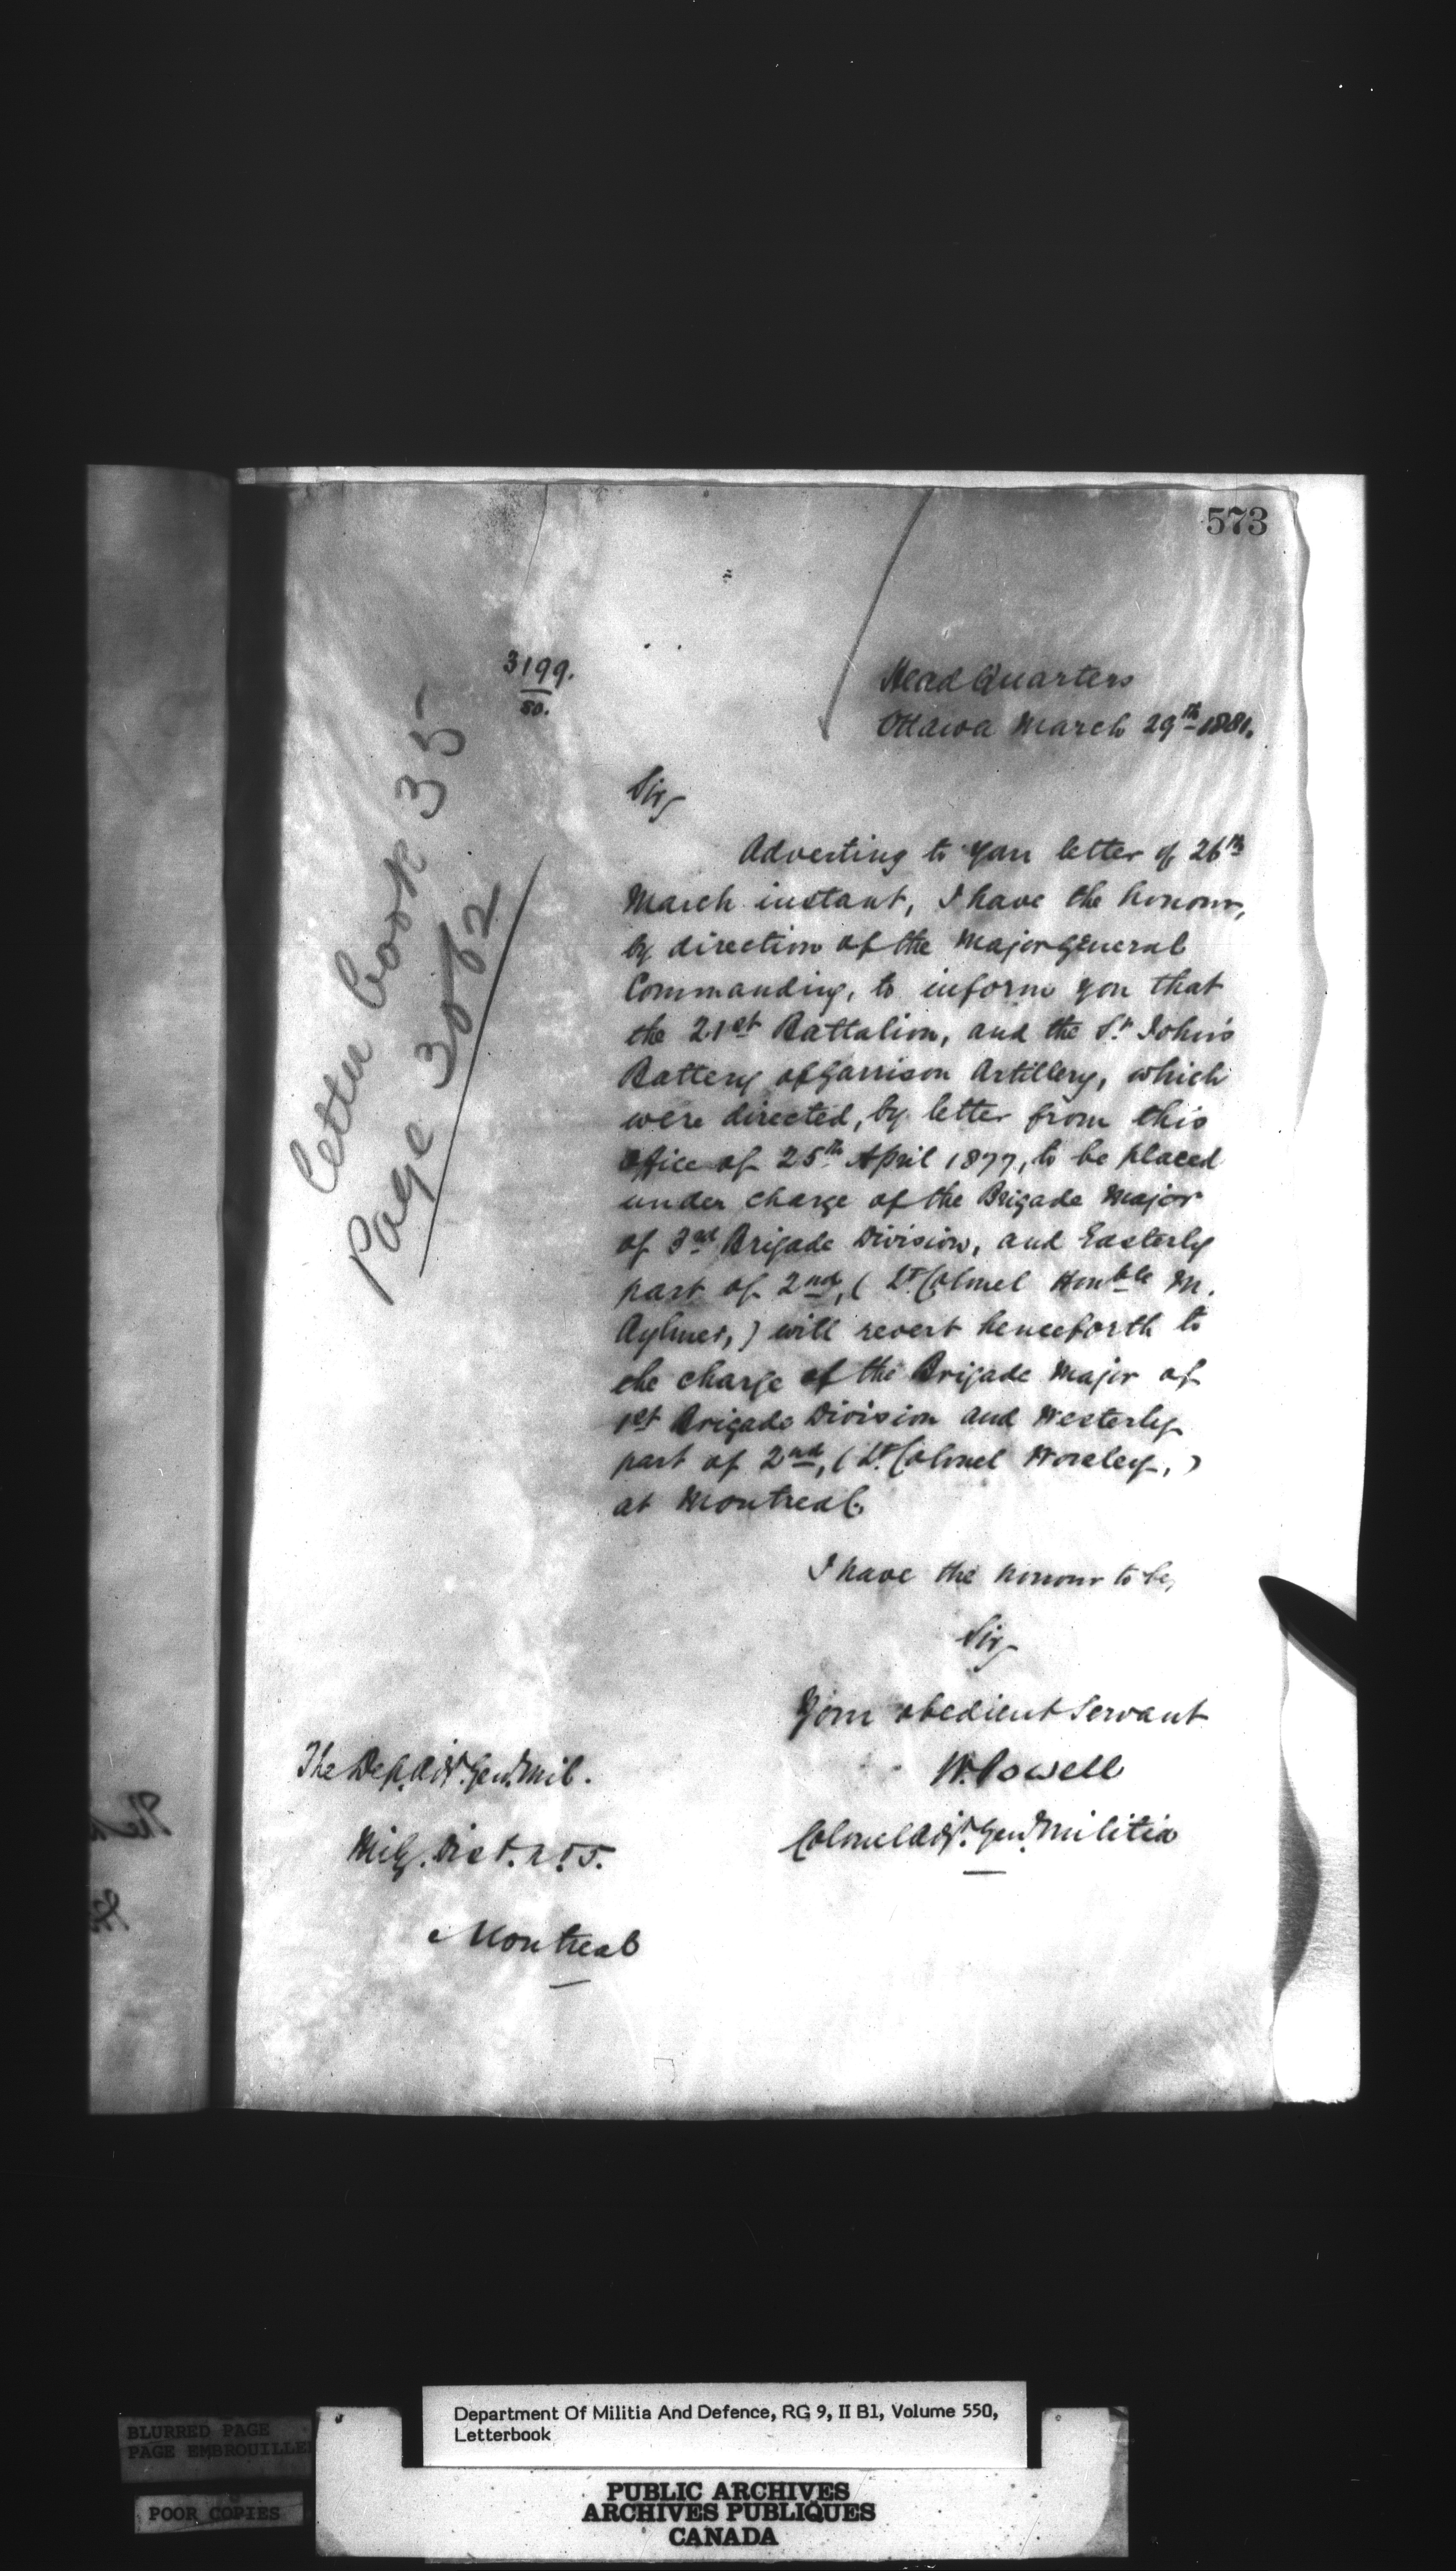 573
3199.
50.
Head Quarters
Ottawa March 29th 1881.
Letter book 35
Page 3082
Sir,
Adverting to your letter of 26th
March instant, I have the honour,
by direction of the Major General
Commanding, to inform you that
the 21st Battalion, and the St. John's
Battery of Garrison Artillery, which
were directed, by letter from this
Office of 25th April 1877, to be placed
under charge of the Brigade Major
of 3rd Brigade Division, and Easterly
part of 2nd, (Lt. Colonel Honble M.
Aylmer,) will revert henceforth to
the charge of the Brigade Major of
1st Brigade Division and Westerly
part of 2nd, (Lt. Colonel Worsley,)
at Montreal.
I have the honour to be,
Sir,
Your obedient Servant
W. Powell
Colonel Adjt. Genl. Militia
The Dep. Adjt. Genl. Mil.
Mily. Dist. No. 5.
Montreal
Department Of Militia And Defence, RG 9, II B1, Volume 550,
Letterbook
BLURRED PAGE
PAGE EMBROUILLE
POOR COPIES
PUBLIC ARCHIVES
ARCHIVES PUBLIQUES
CANADA